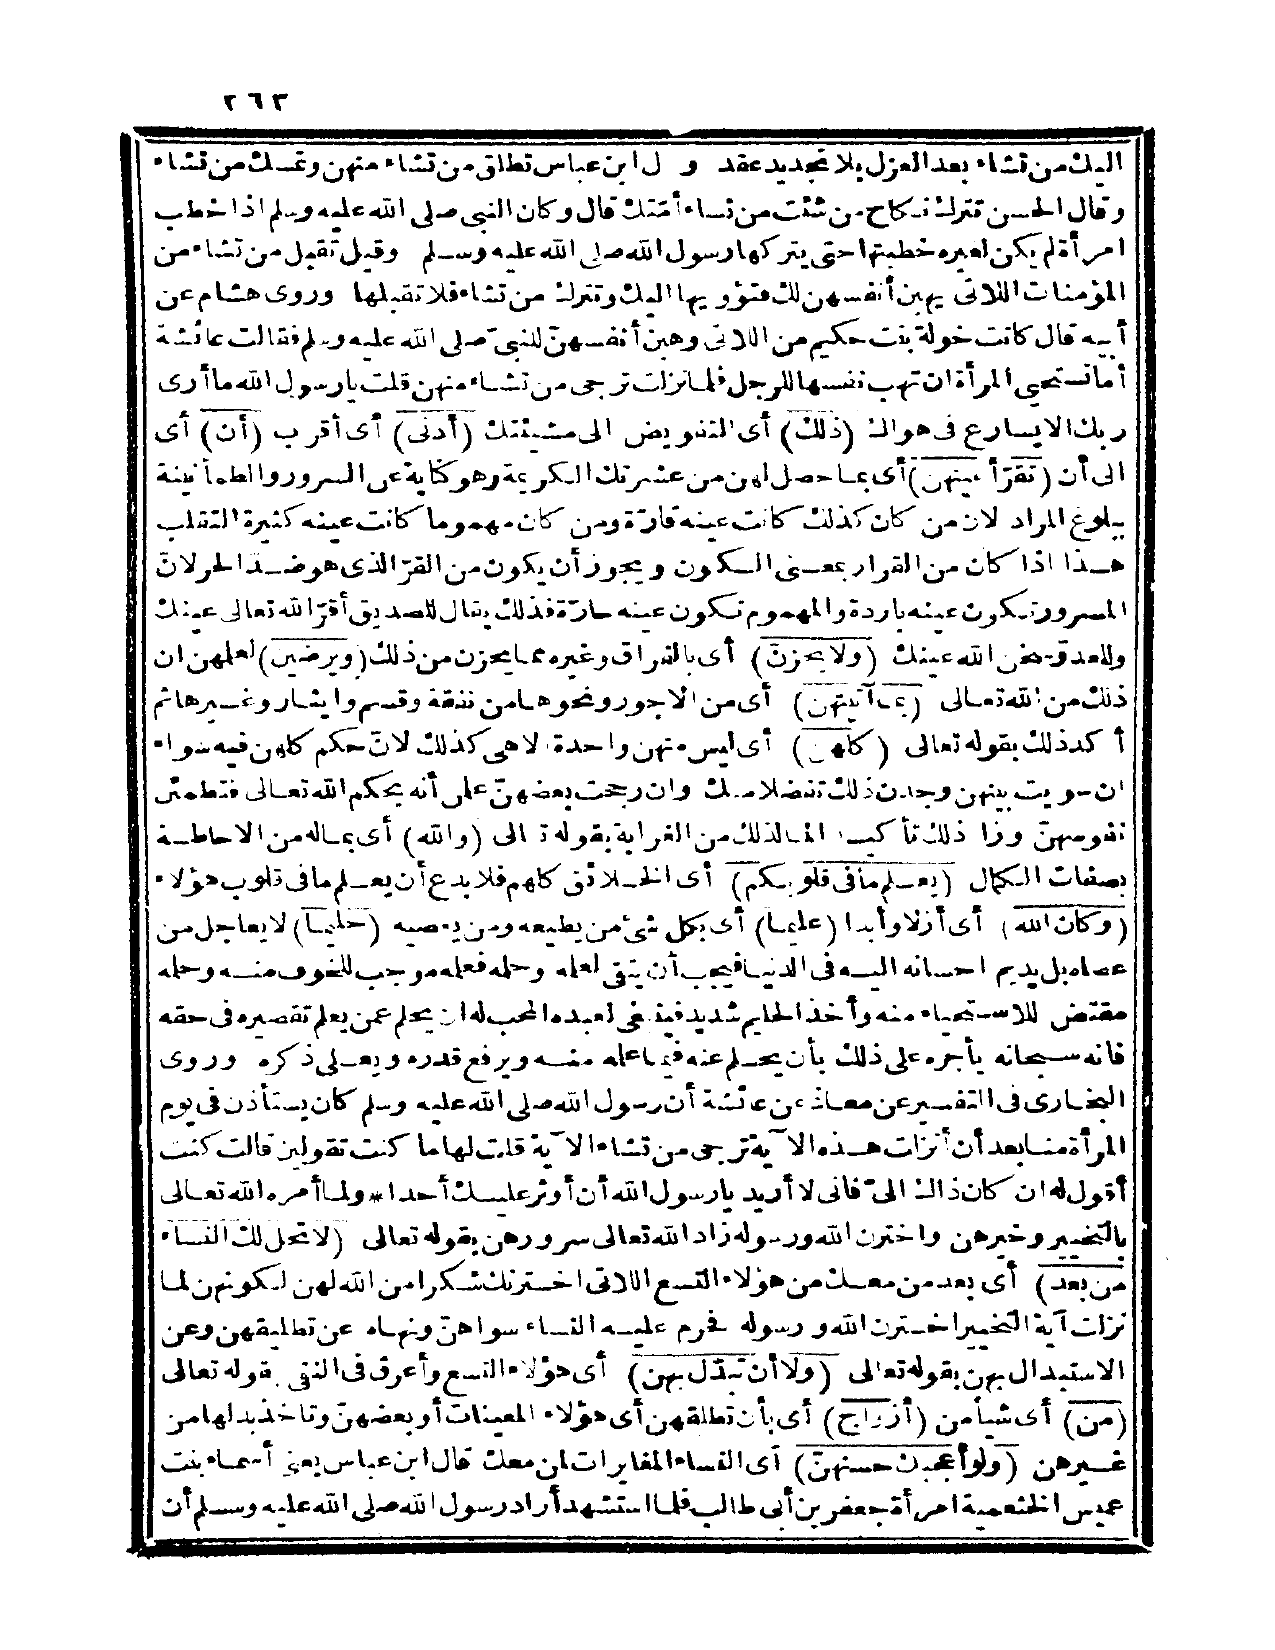 ٢٦٣
اليك من تشاء بعد العزل بلا تجديد عقد و ل ابن عباس تطلق من تشاء منهن وتمسك من تشاء
وقال الحسن تترك نكاح من شئت من نساء أمتك قال وكان النبى صلى الله عليه وسلم اذا خطب
امرأة لم يكن لغيره خطبتها حتى يتركها رسول الله صلى الله عليه وسلم وقيل تقبل من تشاء من
المؤمنات اللاتى يهبن أنفسهن لك فتؤويها اليك وتترك من تشاء فلا تقبلها وروى هشام عن
أبيه قال كانت خولة بنت حكيم من اللاتى وهبن أنفسهنّ للنبىّ صلى الله عليه وسلم فقالت عائشة
أما تستحى المرأة ان تهب نفسها للرجل فلما نزلت ترجى من تشاء منهن قلت يا رسول الله ما أرى
ربك الا يسارع فى هواك (ذلك) أى التفويض الى مشيئتك (أدنى) أى أقرب (أن) أى
الى أن (تقرّ أعينهن) أى بما حصل لهن من عشرتك الكريمة وهو كناية عن السرور والطمأنينة
ببلوغ المراد لان من كان كذلك كانت عينه قارّة ومن كان مهموما كانت عينه كثيرة التقلب
هذا اذا كان من القرار بمعنى السكون ويجوز أن يكون من القرّ الذى هو ضد الحر لانّ
المسرور تكون عينه باردة والمهموم تكون عينه حارّة فلذلك يقال للصديق أقرّ الله تعالى عينك
وللعدوّ سخن الله عينك (ولا يحزنّ) أى بالفراق وغيره مما يحزن من ذلك (ويرضين) لعلمهن ان
ذلك من الله تعالى (بما آتيتهن) أى من الاجور ونحوها من نفقة وقسم وايثار وغيرها ثم
أكد ذلك بقوله تعالى (كلهن) أى ليس منهن واحدة الا هى كذلك لانّ حكم كلهن فيه سواء
ان سويت بينهن وجدن ذلك تفضلا منك وان رجحت بعضهنّ علمن أنه بحكم الله تعالى فتطمئنّ
نفوسهنّ وزاد ذلك تأكيدا لما لذلك من الغرابة بقوله تعالى (والله) أى بما له من الاحاطة
بصفات الكمال (يعلم ما فى قلوبكم) أى الخلائق كلهم فلا بدع أن يعلم ما فى قلوب هؤلاء
(وكان الله) أى أزلا وأبدا (عليما) أى بكل شئ من يطيعه ومن يعصيه (حليما) لا يعاجل من
عصاه بل يديم احسانه اليه فى الدنيا فيجب أن يتقى لعلمه وحلمه فعلمه موجب للخوف منه وحلمه
مقتض للاستحياء منه وأخذ الحليم شديد فينبغى لعبده المحب له ان يحلم عمن يعلم تقصيره فى حقه
فانه سبحانه يأجره على ذلك بأن يحلم عنه فيما علمه منه ويرفع قدره ويعلى ذكره وروى
البخارى فى التفسير عن معاذ عن عائشة أن رسول الله صلى الله عليه وسلم كان يستأذن فى يوم
المرأة منا بعد أن أنزلت هذه الآية ترجى من تشاء الآية قلت لها ما كنت تقولين قالت كنت
أقول له ان كان ذاك الىّ فانى لا أريد يا رسول الله أن أوثر عليك أحدا * ولما أمره الله تعالى
بالتخيير وخيرهن واخترن الله ورسوله زاد الله تعالى سرورهن بقوله تعالى (لا تحل لك النساء
من بعد) أى بعد من معك من هؤلاء التسع اللاتى اخترنك شكرا من الله لهن لكونهن لما
نزلت آية التخيير اخترن الله ورسوله فحرم عليه النساء سواهنّ ونهاه عن تطليقهن وعن
الاستبدال بهن بقوله تعالى (ولا أن تبدّل بهن) أى هؤلاء التسع وأعرق فى النفى بقوله تعالى
(من) أى شيأ من (أزواج) أى بأن تطلقهن أى هؤلاء المعينات أو بعضهنّ وتأخذ بدلها من
غيرهن (ولو أعجبك حسنهنّ) أى النساء المغايرات لمن معك قال ابن عباس يعنى أسماء بنت
عميس الخثعمية امرأة جعفر بن أبى طالب فلما استشهد أراد رسول الله صلى الله عليه وسلم أن